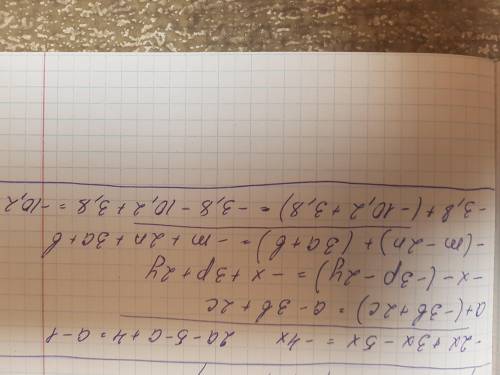 -2x + 3x - 5x = -4x    2a - 5 - a + 4 = a - 1
a + (-3b + 2c) = a - 3b + 2c
-x - (-3p - 2y) = -x + 3p + 2y
-(m - 2n) + (3a + b) = -m + 2n + 3a + b
-3,8 + (-10,2 + 3,8) = -3,8 - 10,2 + 3,8 = -10,2